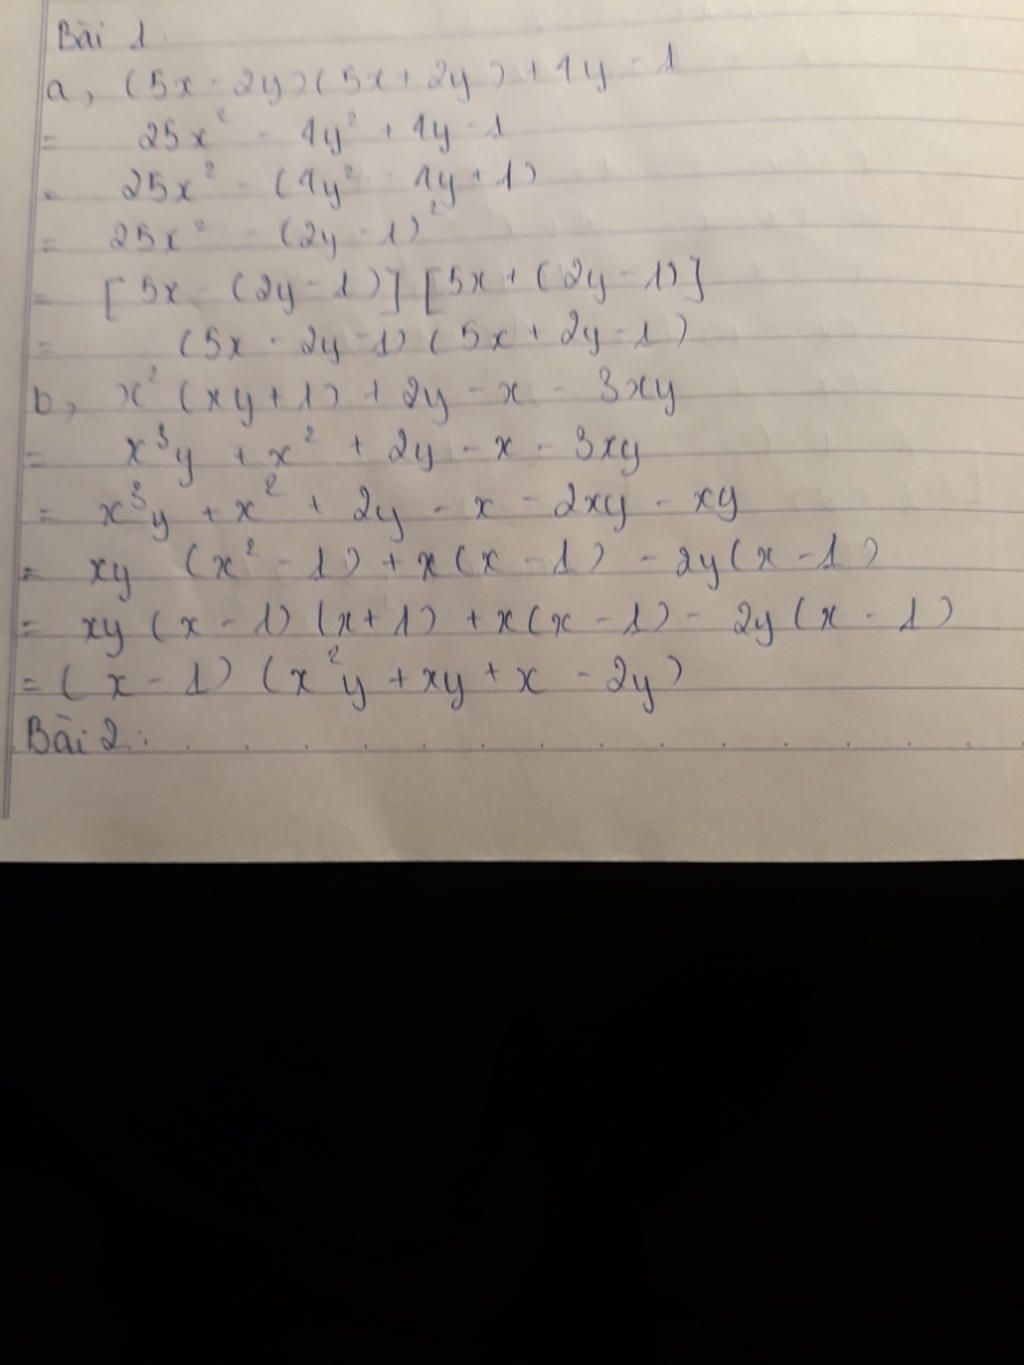 Bài 1
a, (5x - 2y)(5x + 2y) + 4y - 1
= 25x² - 4y² + 4y - 1
= 25x² - (4y² - 4y + 1)
= 25x² - (2y - 1)²
= [5x - (2y - 1)] [5x + (2y - 1)]
= (5x - 2y - 1) (5x + 2y - 1)
b, x² (xy + 1) + 2y - x - 3xy
= x³y + x² + 2y - x - 3xy
= x³y + x² + 2y - x - 2xy - xy
= xy (x² - 1) + x(x - 1) - 2y(x - 1)
= xy (x - 1) (x + 1) + x(x - 1) - 2y (x - 1)
= (x - 1) (x²y + xy + x - 2y)
Bài 2: . . . . . . . . . . . . . .